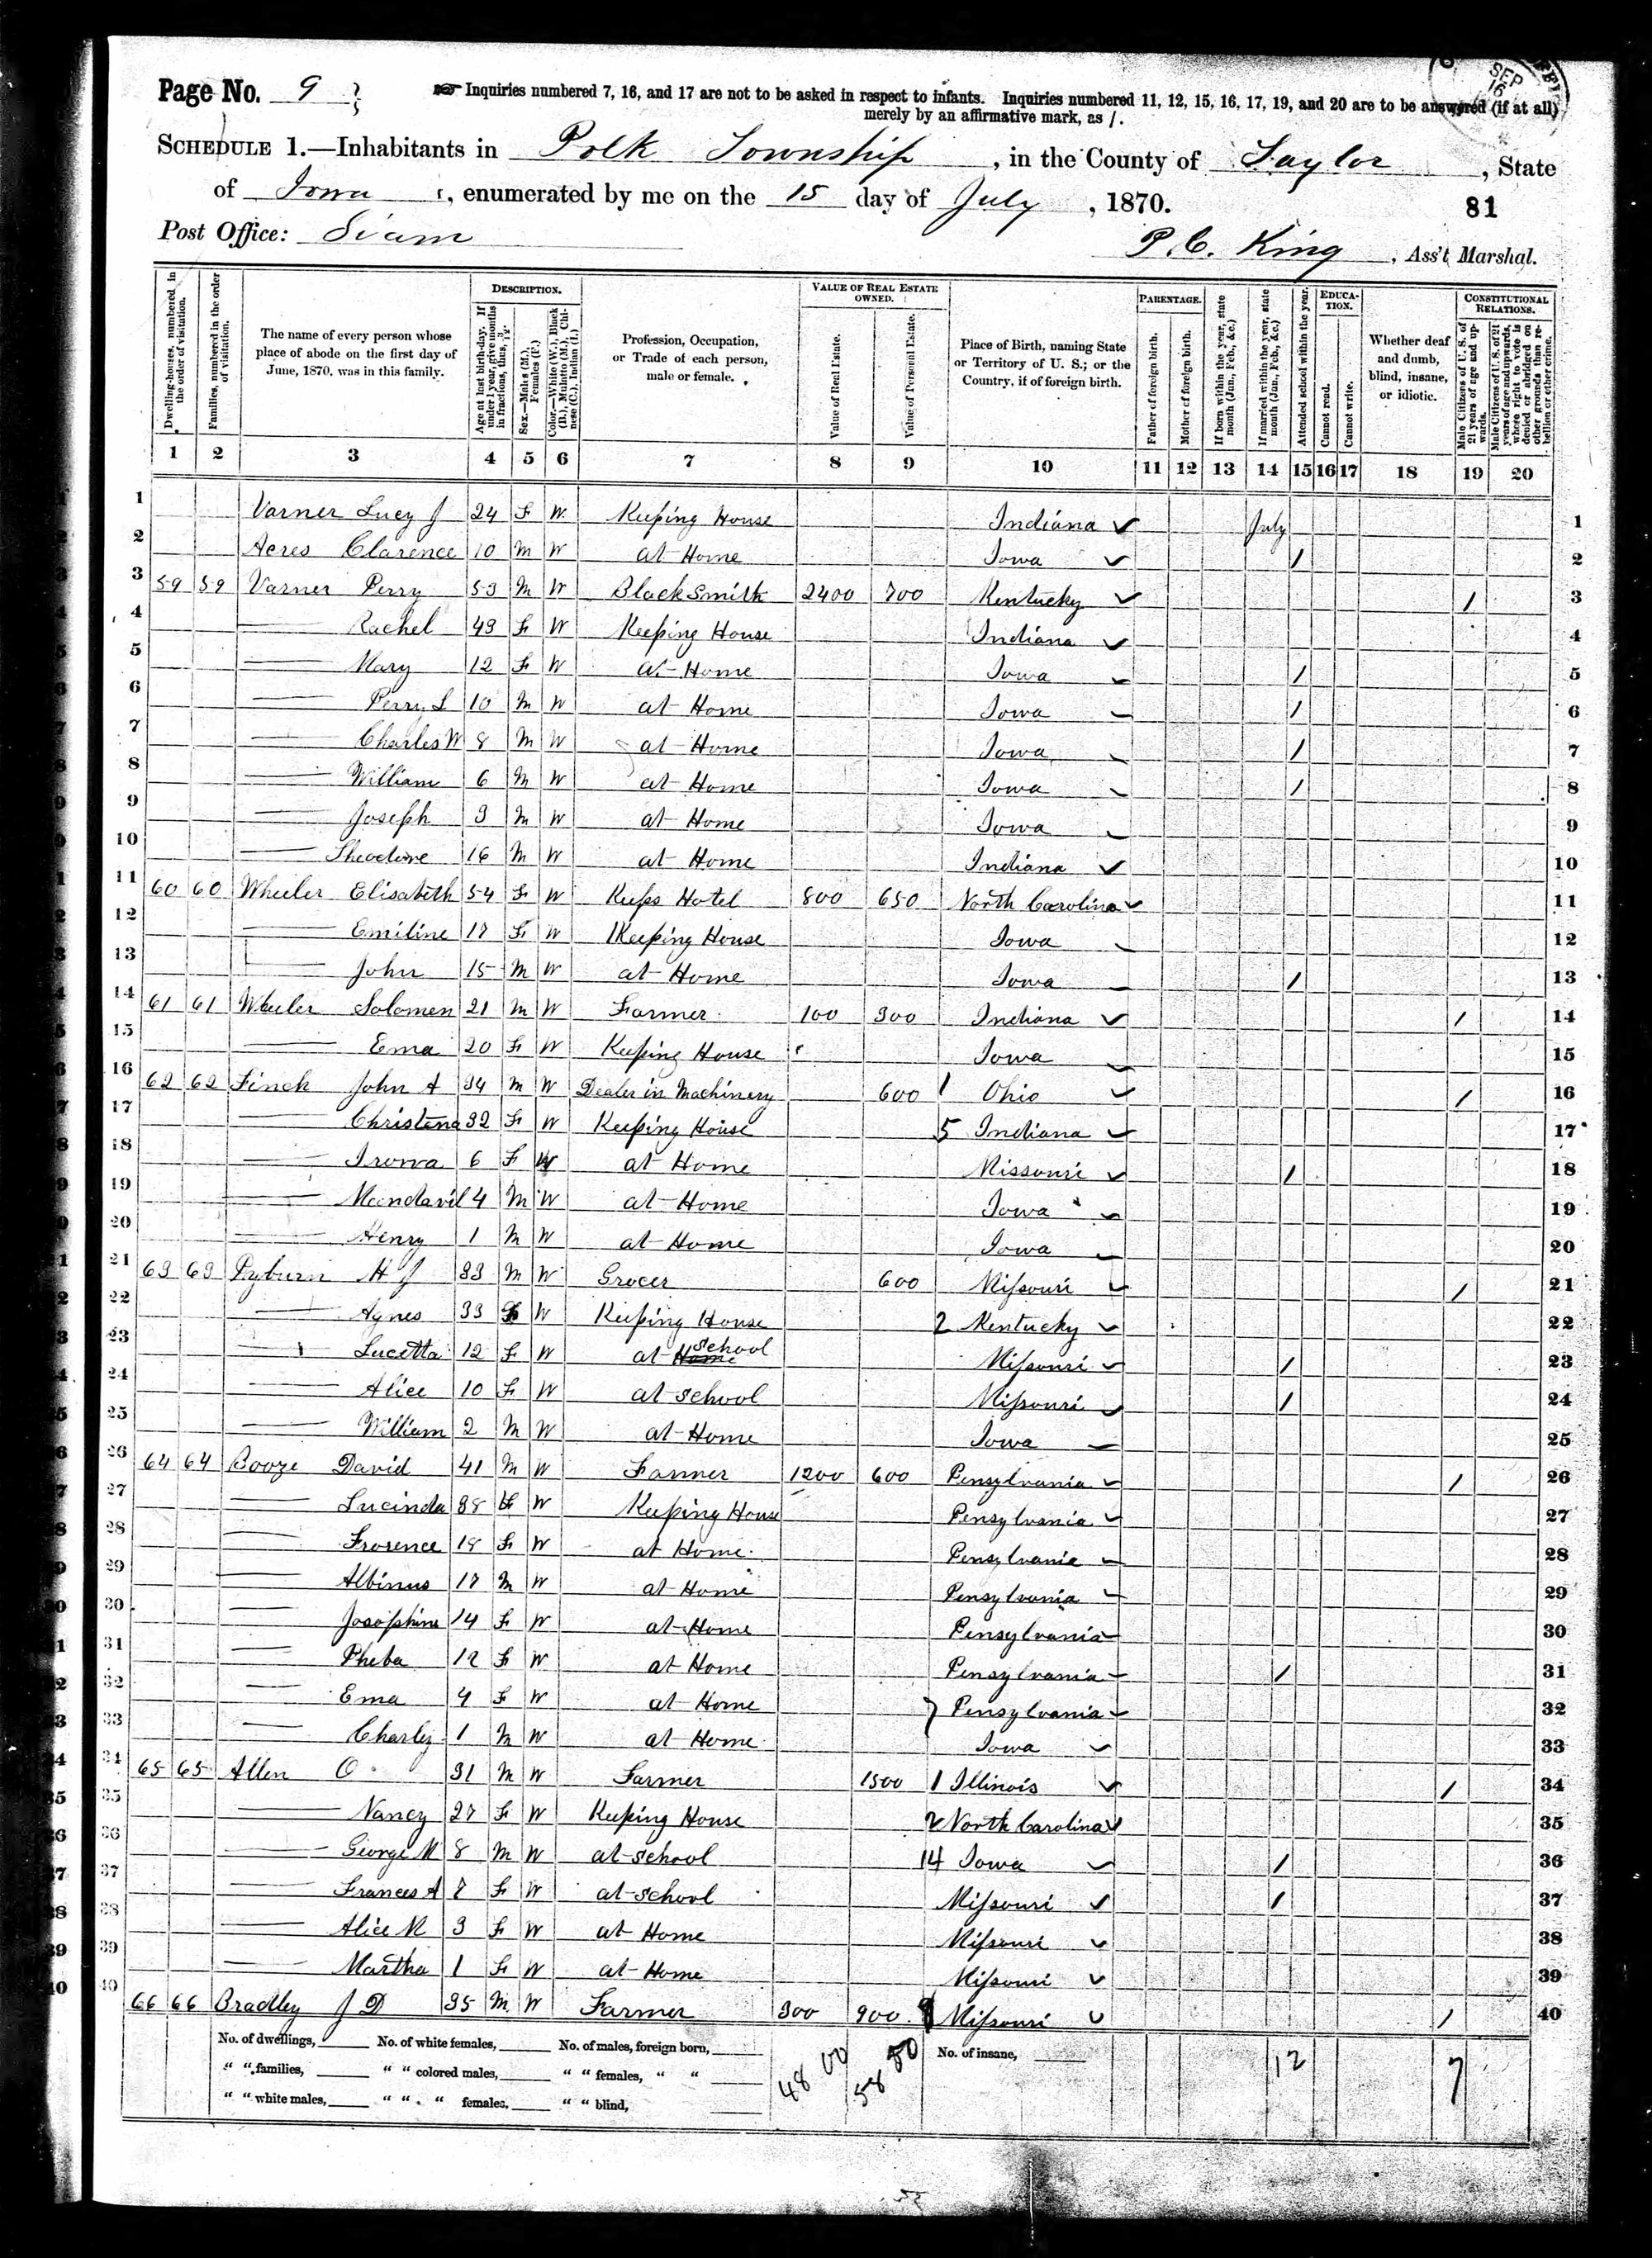 Page No. 9
Inquiries numbered 7, 16, and 17 are not to be asked in respect to infants. Inquiries numbered 11, 12, 15, 16, 17, 19, and 20 are to be answered (if at all)
merely by an affirmative mark, as /.
SEP
SCHEDULE 1.—Inhabitants in Polk Township, in the County of Taylor, State
of Iowa, enumerated by me on the 15 day of July, 1870.
81
Post Office: Siam
P. C. King, Ass't Marshal.
Dwelling-houses, numbered in the order of visitation.
Families, numbered in the order of visitation.
The name of every person whose place of abode on the first day of June, 1870, was in this family.
DESCRIPTION.
Age at last birth-day. If under 1 year, give months in fractions, thus, 3/12.
Sex.—Males (M.), Females (F.)
Color.—White (W.), Black (B.), Mulatto (M.), Chinese (C.), Indian (I.)
Profession, Occupation, or Trade of each person, male or female.
VALUE OF REAL ESTATE OWNED.
Value of Real Estate.
Value of Personal Estate.
Place of Birth, naming State or Territory of U. S.; or the Country, if of foreign birth.
PARENTAGE.
Father of foreign birth.
Mother of foreign birth.
If born within the year, state month (Jan., Feb., &c.)
If married within the year, state month (Jan., Feb., &c.)
Attended school within the year.
EDUCATION.
Cannot read.
Cannot write.
Whether deaf and dumb, blind, insane, or idiotic.
CONSTITUTIONAL RELATIONS.
Male Citizens of U. S. of 21 years of age and upwards.
Male Citizens of U. S. of 21 years of age and upwards, where right to vote is denied or abridged on other grounds than rebellion or other crime.
1 2 3 4 5 6 7 8 9 10 11 12 13 14 15 16 17 18 19 20
1 Varner Lucy J 24 F W Keeping House Indiana ✓ July 1
2 Acres Clarence 10 M W at Home Iowa ✓ / 2
3 59 59 Varner Perry 53 M W Black Smith 2400 700 Kentucky ✓ / 3
4 — Rachel 43 F W Keeping House Indiana ✓ 4
5 — Mary 12 F W at Home Iowa ✓ / 5
6 — Perry L 10 M W at Home Iowa ✓ / 6
7 — Charles W 8 M W at Home Iowa ✓ / 7
8 — William 6 M W at Home Iowa ✓ / 8
9 — Joseph 3 M W at Home Iowa ✓ 9
10 — Theodore 16 M W at Home Indiana ✓ 10
11 60 60 Wheeler Elisabeth 54 F W Keeps Hotel 800 650 North Carolina ✓ 11
12 — Emiline 17 F W Keeping House Iowa ✓ 12
13 — John 15 M W at Home Iowa ✓ / 13
14 61 61 Wheeler Solomen 21 M W Farmer 100 300 Indiana ✓ / 14
15 — Ema 20 F W Keeping House Iowa ✓ 15
16 62 62 Finch John A 34 M W Dealer in Machinery 600 1 Ohio ✓ / 16
17 — Christena 32 F W Keeping House 5 Indiana ✓ 17
18 — Irowa 6 F W at Home Missouri ✓ / 18
19 — Mandavil 4 M W at Home Iowa ✓ 19
20 — Henry 1 M W at Home Iowa ✓ 20
21 63 63 Pyburn H J 33 M W Grocer 600 Missouri ✓ / 21
22 — Agnes 33 F W Keeping House 2 Kentucky ✓ 22
23 — Lucetta 12 F W at Home school Missouri ✓ / 23
24 — Alice 10 F W at school Missouri ✓ / 24
25 — William 2 M W at Home Iowa ✓ 25
26 64 64 Booze David 41 M W Farmer 1200 600 Pensylvania ✓ / 26
27 — Lucinda 38 F W Keeping House Pensylvania ✓ 27
28 — Frorence 18 F W at Home Pensylvania ✓ 28
29 — Albinus 17 M W at Home Pensylvania ✓ 29
30 — Josophine 14 F W at Home Pensylvania ✓ 30
31 — Pheba 12 F W at Home Pensylvania ✓ / 31
32 — Ema 4 F W at Home 7 Pensylvania ✓ 32
33 — Charley 1 M W at Home Iowa ✓ 33
34 65 65 Allen O 31 M W Farmer 1500 1 Illinois ✓ / 34
35 — Nancy 27 F W Keeping House 2 North Carolina ✓ 35
36 — George M 8 M W at school 14 Iowa ✓ / 36
37 — Frances A 7 F W at school Missouri ✓ / 37
38 — Alice M 3 F W at Home Missouri ✓ 38
39 — Martha 1 F W at Home Missouri ✓ 39
40 66 66 Bradley J D 35 M W Farmer 300 900 Missouri ✓ / 40
No. of dwellings, No. of white females, No. of males, foreign born, No. of insane,
" " families, " " colored males, " " females, " "
" " white males, " " " females, " " blind,
4800 5850 12 7